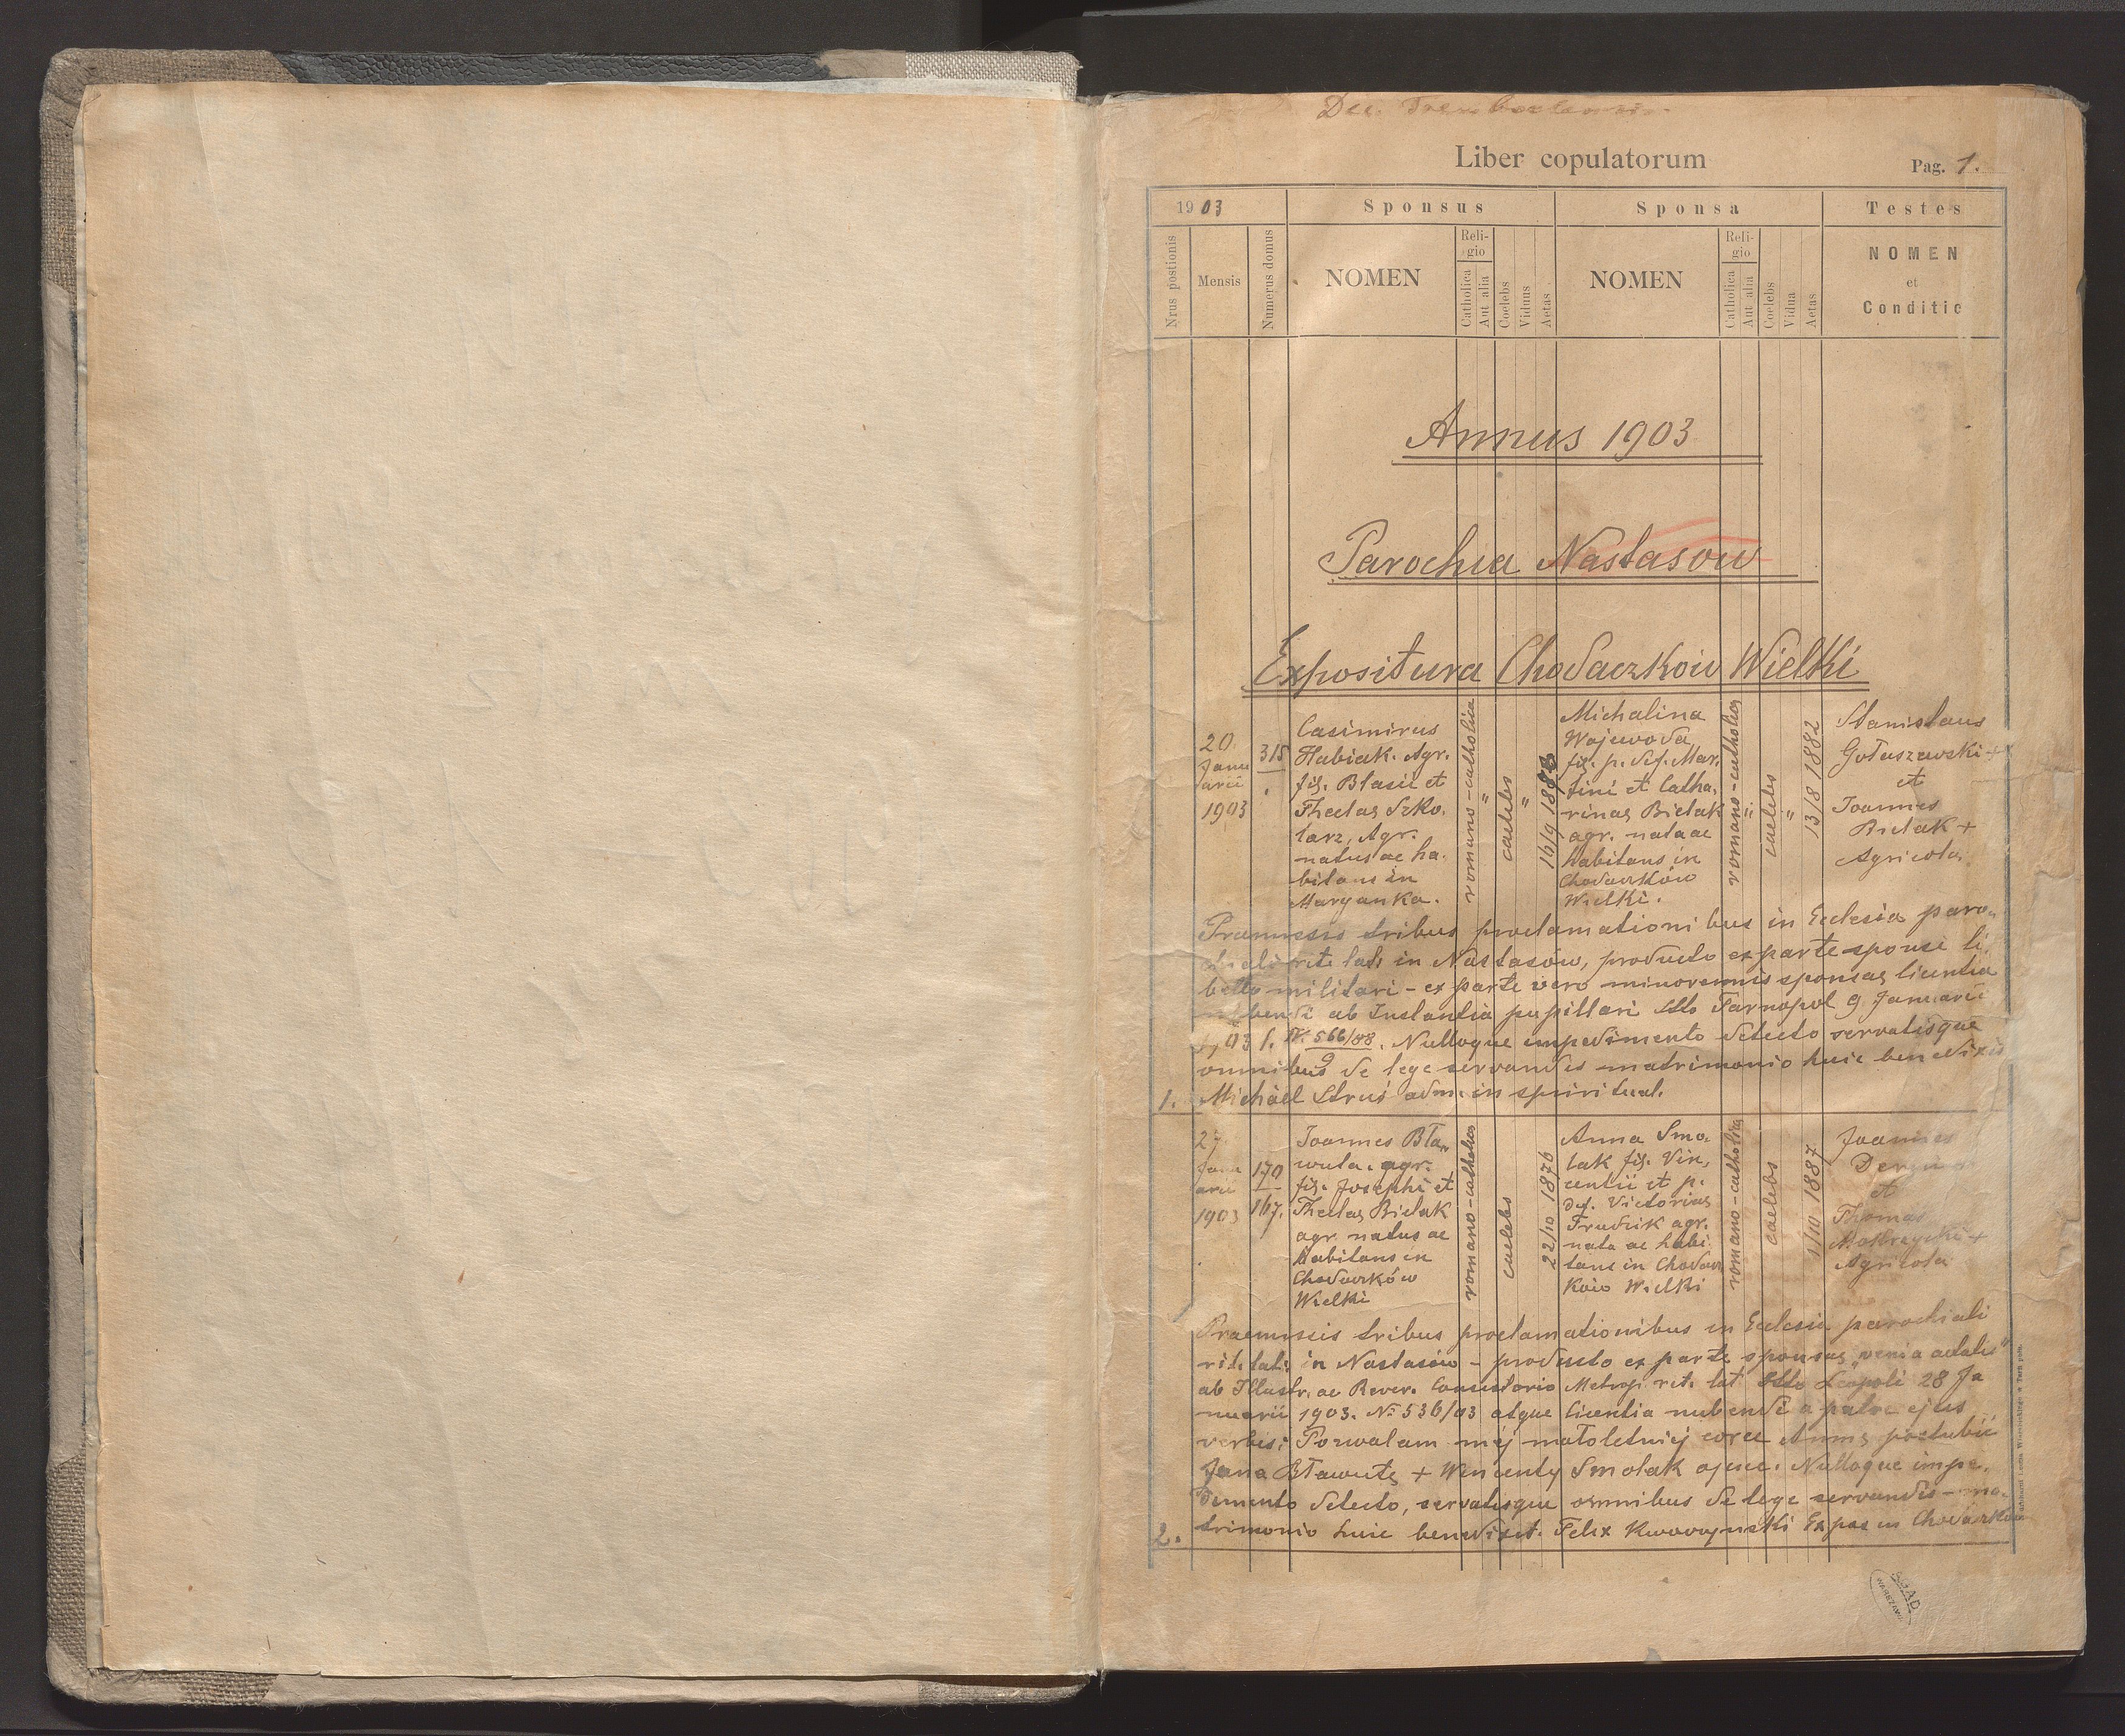 Liber copulatorum
Pag. 1.
1903
Sponsus
Sponsa
Testes
Nrus postionis
Mensis
Numerus domus
NOMEN
Religio
Catholica
Aut alia
Coelebs
Viduus
Aetas
NOMEN
Religio
Catholica
Aut alia
Coelebs
Vidua
Aetas
NOMEN
et
Conditio
Annus 1903
Parochia Nastasow
Expositura Chodaczkow Wielki
20
Janu
arii
1903
315
Casimirus
Habiak. Agr.
fil. Blasii et
Theclae Szko-
larz, Agr.
natus ac ha-
bitans in
Maryanka.
romano-catholica
"
caelebs
"
16/9
Michalina
Wojewoda
fil. p. def. Mar-
tini et Catha-
rinae Bielak
agr. nata ac
habitans in
Chodaczków
Wielki.
romano-catholica
"
caelebs
"
13/8 1882
Stanislaus
Gołaszewski +
et
Joannes
Bielak +
Agricolae
Praemissis tribus proclamationibus in Ecclesia paro-
chiali rit. lat. in Nastasów, producto ex parte sponsi li-
bello militari - ex parte vero minorennis sponsae licentia
nubendi ab Instantia pupillari ddto Tarnopol 9 Januarii
1903 l. Nulloque impedimento detecto servatisque
omnibus de lege servandis matrimonio huic benedixit
1. Michael Struś adm. in spiritual.
27
Janu
arii
1903
170
167.
Joannes Bła-
wuta. agr.
fil. Josephi et
Theclae Bielak
agr. natus ac
habitans in
Chodaczków
Wielki
romano-catholica
caelebs
22/10 1876
Anna Smo-
lak fil. Vin-
centii et p.
def. Victoriae
agr.
nata ac habi
tans in Chodacz
ków Wielki
romano-catholica
caelebs
1/10 1887
Joannes
et
Thomas
Agricolae
Praemissis tribus proclamationibus in Ecclesia parochiali
rit. lat. in Nastasów - producto ex parte sponsae „venia aetatis"
ab Illustr. ac Rever. Consistorio Metrop. rit. lat. ddto Leopoli 28 Ja
nuarii 1903. № 536/03 atque licentia nubendi a patre ejus
verbis: Pozwalam mej małoletniej córce Annie poślubić
Jana Bławutę + Wincenty Smolak ojciec. Nulloque impe-
dimento detecto, servatisque omnibus de lege servandis - ma-
2. trimonio huic benedixit. Felix Expos in Chodaczków
AGAD
WARSZAWA